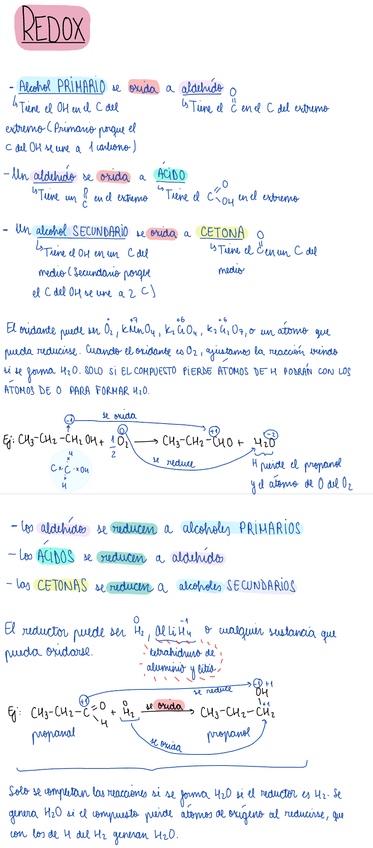 REDOX
- Alcohol PRIMARIO se oxida a aldehído
↳ Tiene el OH en el C del ↳ Tiene el C=O en el C del extremo
extremo (Primario porque el
C del OH se une a 1 carbono)
- Un aldehído se oxida a ÁCIDO
↳ Tiene un C=O en el extremo ↳ Tiene el C=O OH en el extremo
- Un alcohol SECUNDARIO se oxida a CETONA
↳ Tiene el OH en un C del ↳ Tiene el C=O en un C del
medio (Secundario porque medio
el C del OH se une a 2 C)
El oxidante puede ser O₂, KMnO₄, K₂CrO₄, K₂Cr₂O₇, o un átomo que
0 +7 +6 +6
pueda reducirse. Cuando el oxidante es O₂, ajustamos la reacción viendo
si se forma H₂O. SOLO SI EL COMPUESTO PIERDE ÁTOMOS DE H PODRÁN CON LOS
ÁTOMOS DE O PARA FORMAR H₂O.
se oxida
-1 0 +1 -2
Ej: CH₃-CH₂-CH₂OH + 1/2 O₂ → CH₃-CH₂-CHO + H₂O
se reduce
H
C × C × OH
H
H pierde el propanol
y el átomo de O del O₂
- Los aldehídos se reducen a alcoholes PRIMARIOS
- Los ÁCIDOS se reducen a aldehídos
- Las CETONAS se reducen a alcoholes SECUNDARIOS
El reductor puede ser H₂, AlLiH₄ o cualquier sustancia que
0 -1
pueda oxidarse. tetrahidruro de
aluminio y litio
se reduce
+1 0 -1 +1
OH
Ej: CH₃-CH₂-C=O H + H₂ se oxida → CH₃-CH₂-CH₂
propanal propanol
se oxida
Solo se completan las reacciones si se forma H₂O si el reductor es H₂. Se
genera H₂O si el compuesto pierde átomos de oxígeno al reducirse, que
con los de H del H₂ generan H₂O.